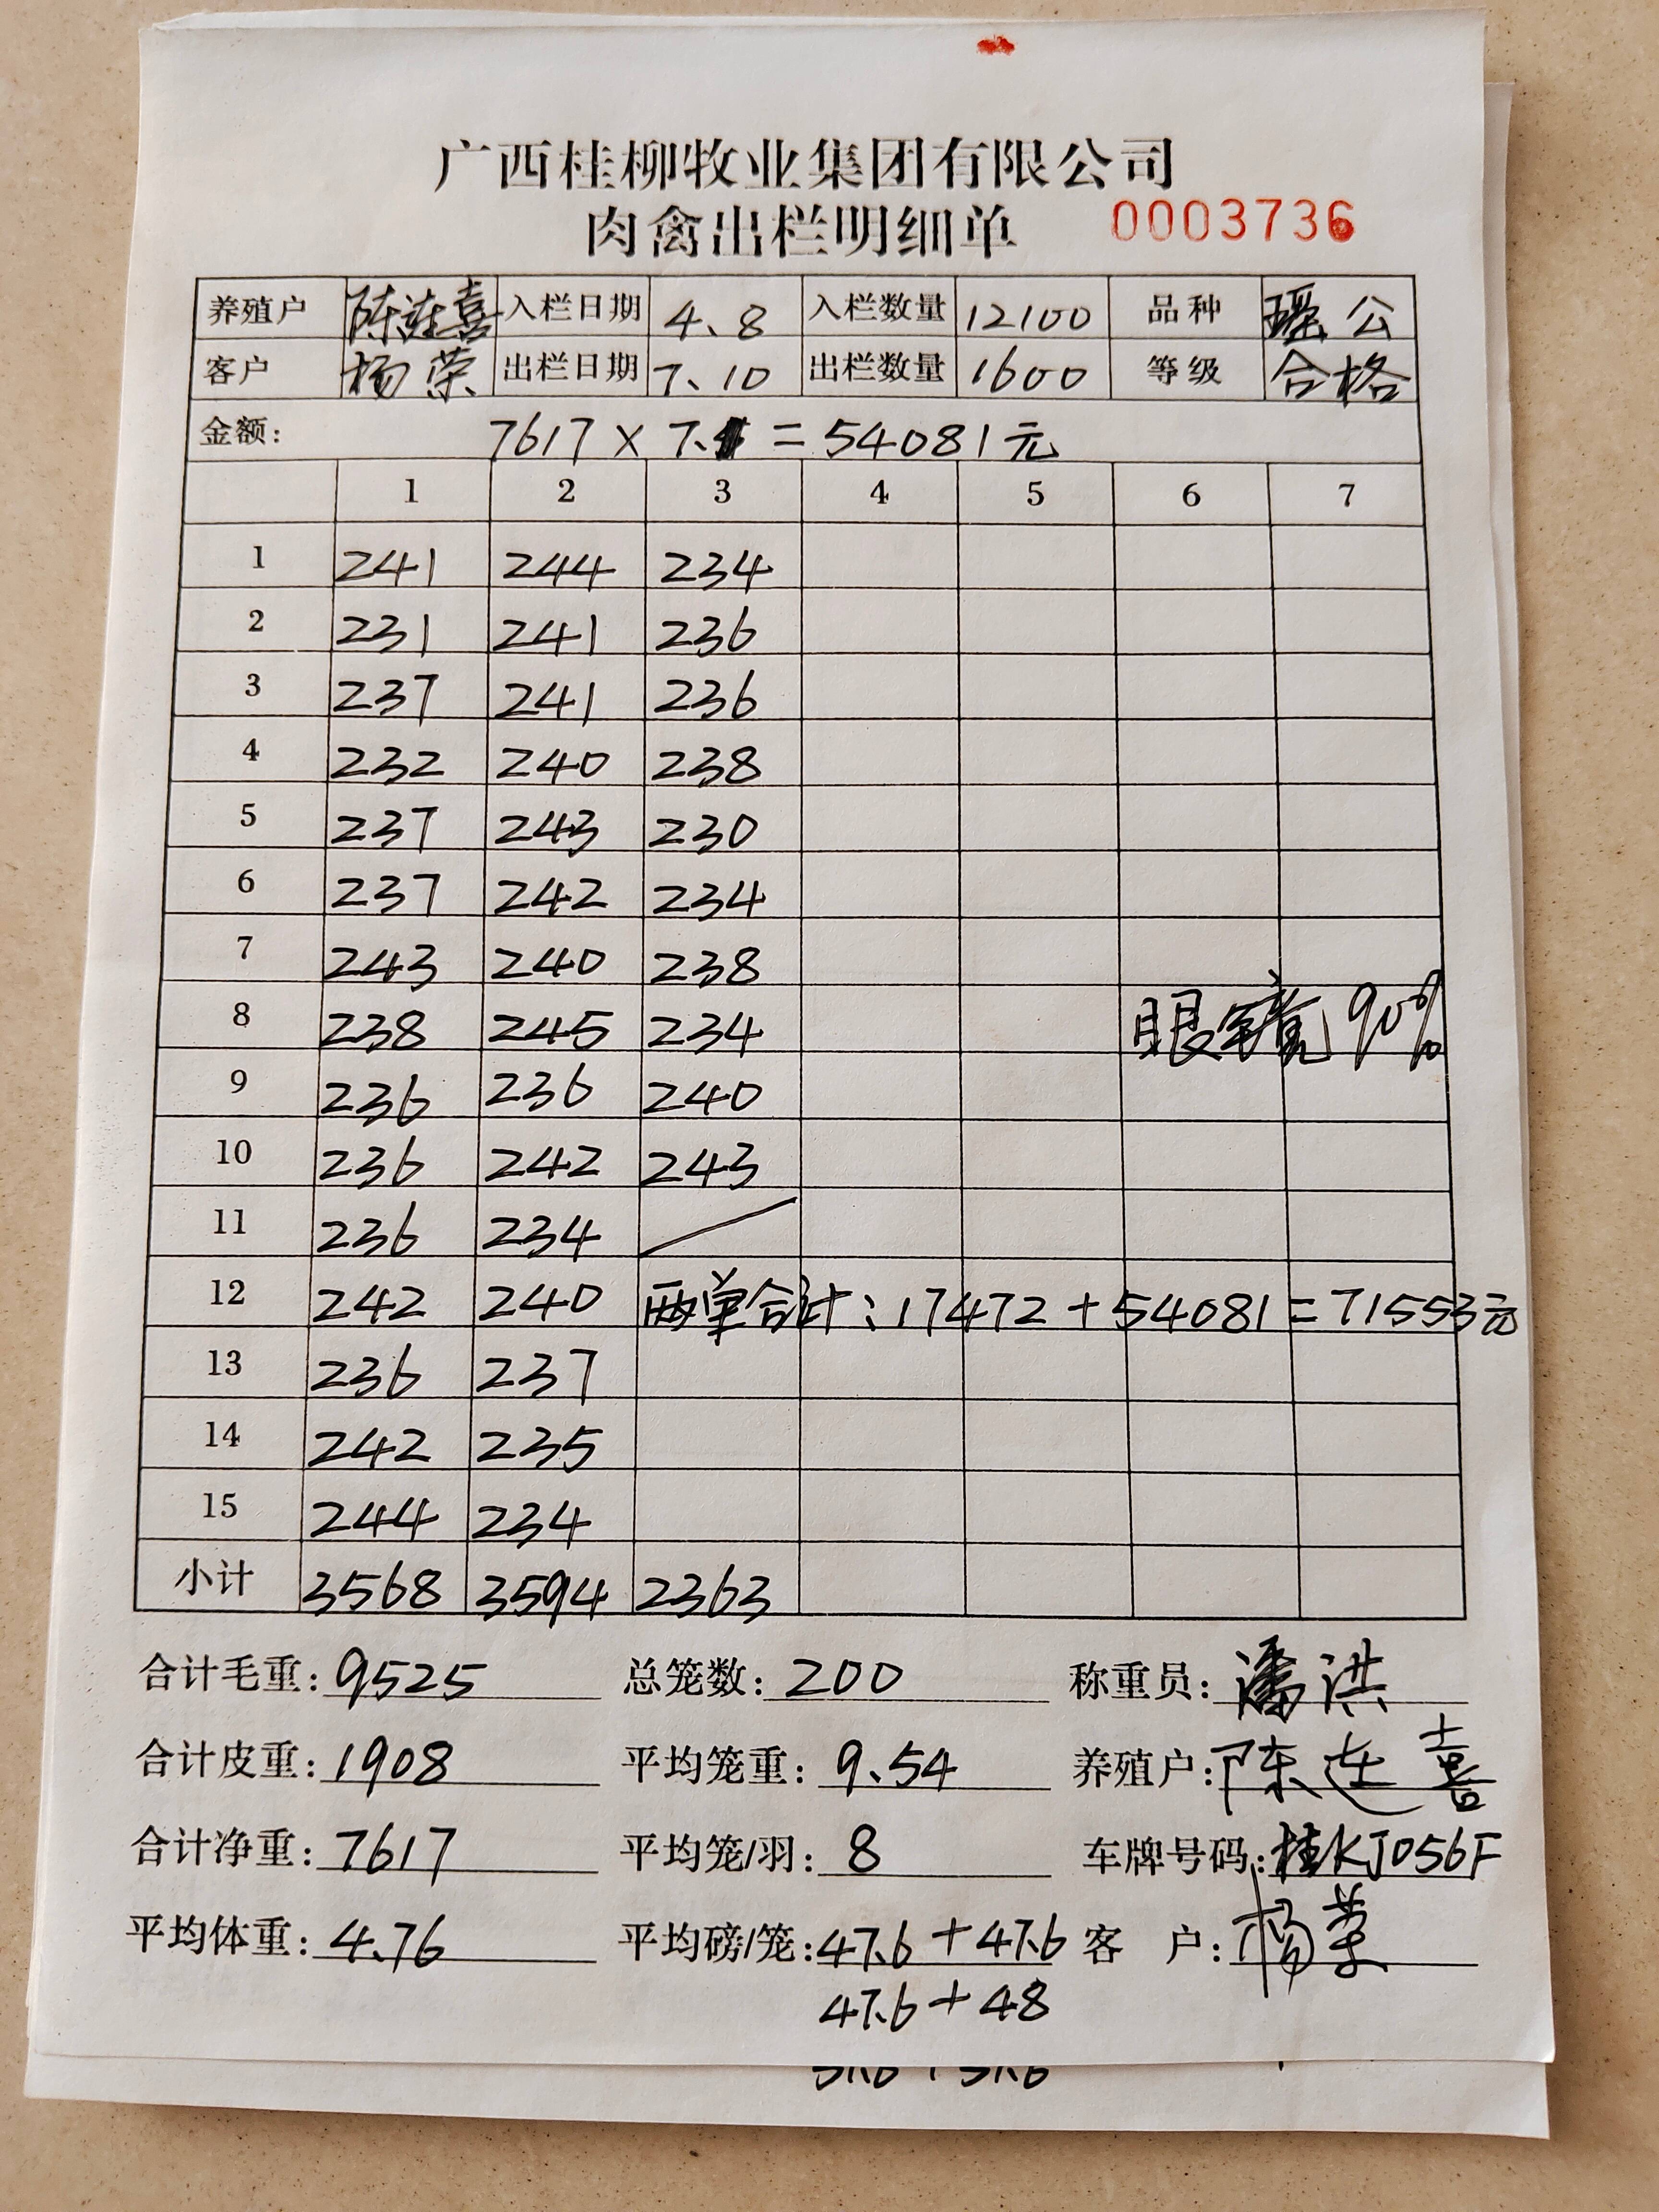 广西桂柳牧业集团有限公司
肉禽出栏明细单 0003736
养殖户 陈连喜 入栏日期 4、8 入栏数量 12100 品种 瑶公
客户 杨荣 出栏日期 7、10 出栏数量 1600 等级 合格
金额: 7617 × 7、1 = 54081元
1 2 3 4 5 6 7
1 241 244 234
2 231 241 236
3 237 241 236
4 232 240 238
5 237 243 230
6 237 242 234
7 243 240 238
8 238 245 234 眼 90%
9 236 236 240
10 236 242 243
11 236 234
12 242 240 两单合计:17472+54081=71553元
13 236 237
14 242 235
15 244 234
小计 3568 3594 2363
合计毛重:9525 总笼数:200 称重员:潘洪
合计皮重:1908 平均笼重:9、54 养殖户:陈连喜
合计净重:7617 平均笼/羽:8 车牌号码:桂KJ056F
平均体重:4、76 平均磅/笼:47、6+47、6 客户:杨荣
47、6+48